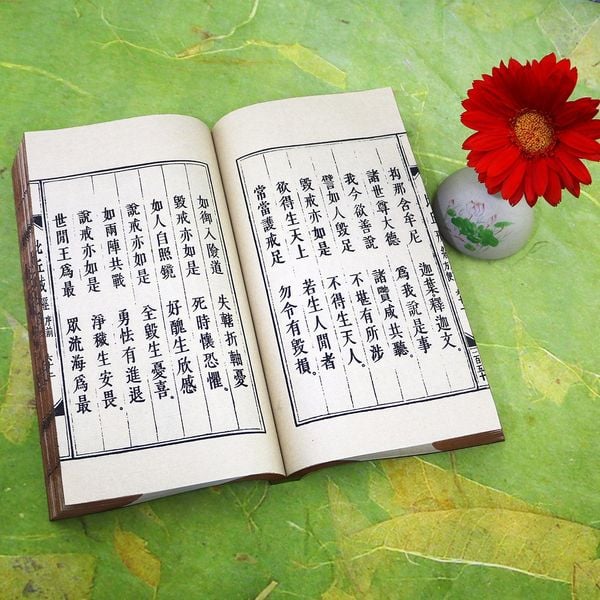 刹那含牟尼 迦葉釋迦文。
諸世尊大德 爲我說是事
我今欲善說 諸賢咸共聽。
譬如人毀足 不堪有所涉
毀戒亦如是 不得生天人。
欲得生天上 若生人間者
常當護戒足 勿令有毀損。
如御入險道 失轄折軸憂
毀戒亦如是 死時懷恐懼。
如人自照鏡 好醜生欣感
說戒亦如是 全毀生憂喜。
如兩陣共戰 勇怯有進退
說戒亦如是 淨穢生安畏。
世間王爲最 眾流海爲最
比丘戒經